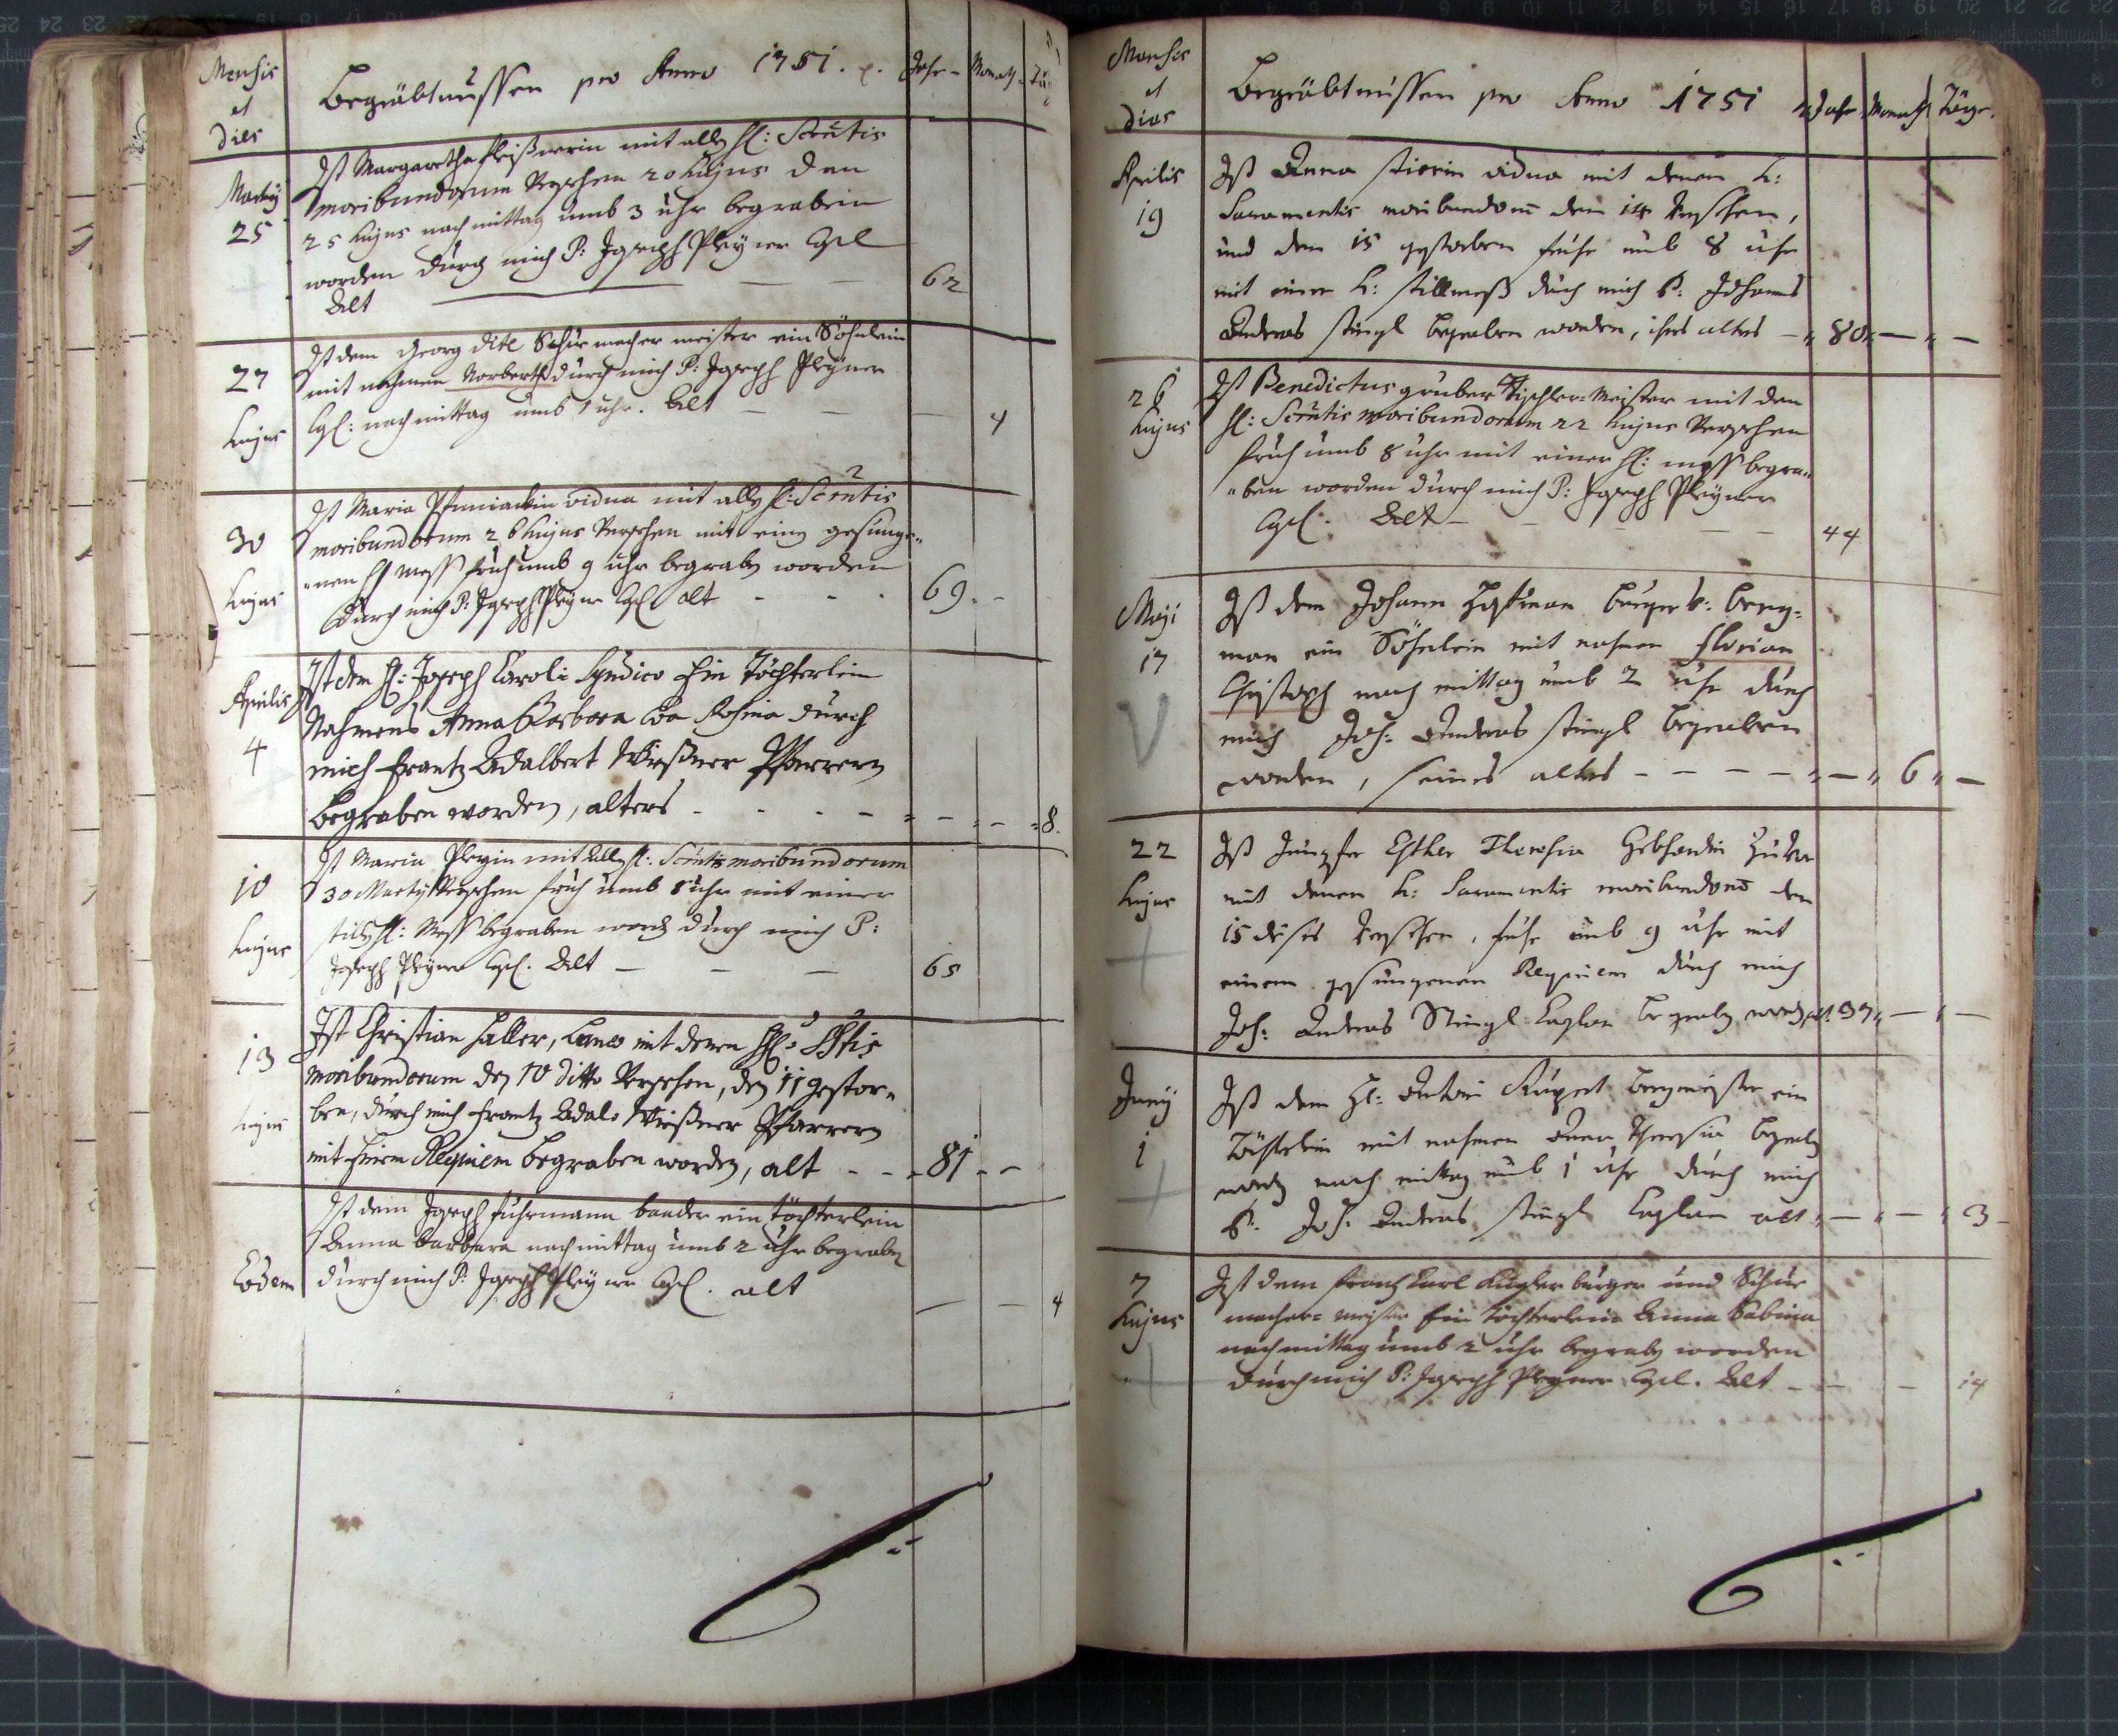 Mensis
et
Dies
Begräbtnussen pro Anno 1751.
Jahr
Monath
Martÿ
25
Ist Margaretha mit allen hl: Scrntis
moribundorum Versehen 20 hujus den
25 hujus nach mittag umb 3 uhr begraben
worden durch mich P: Joseph Pleÿner Cpl
Alt
62
27
hujus
Ist dem Georg Ditl Schuemacher meister ein Söhnlein
mit nahmen Norberth durch mich P: Joseph Pleÿner
Cpl: nach mittag umb 1 uhr. Alt
4
30
hujus
Ist Maria vidua mit allen hl: Scrntis
moribundorum 26 hujus Versehen mit einer gesunge-
nen hl Mess fruh umb 9 uhr begraben worden
Durch mich P: Joseph Pleÿner Cpl alt
69
Aprilis
4
Ist dem H: Joseph Caroli Syndico Ein Töchterlein
Nahmens Anna Barbara Rosina durch
mich Frantz Adalbert Pfarrern
begraben worden, alters
8
10
hujus
Ist Maria mit allen hl: Scrntis moribundorum
30 Martÿ Versehen fruh umb 8 uhr mit einer
stillen hl: Mess begraben worden durch mich P:
Joseph Pleÿner Cpl. Alt
65
13
hujus
Ist Christian Haller, mit denen hl:
moribundorum den 10 ditto Versehen, den 11 gestor-
ben, durch mich Frantz Adal: Pfarrern
mit Einem Requiem begraben worden, alt
81
Eodem
Ist dem Joseph Fuhrmann baader ein töchterlein
Anna barbara nach mittag umb 2 uhr begraben
durch mich P: Joseph Pleÿner Cpl. alt
4
Mensis
et
Dies
Begräbtnussen pro Anno 1751
Jahr
Monath
Täge
Aprilis
19
Ist Anna vidua mit denen h:
Sacramentis moribundorum den 14 Versehen,
und den 15 gestorben fruhe umb 8 uhr
mit einer h: stillmeß durch mich P: Johannes
Andreas Stingl begraben worden, ihres alters
80
26
hujus
Ist Benedictus gruber Tischler-Meister mit den
hl: Scrntis moribundorum 22 hujus Versehen
fruh umb 8 uhr mit einer hl: mess begra-
ben worden durch mich P: Joseph Pleÿner
Cpl. Alt
44
Maji
17
Ist dem Johann burger v: berg-
man ein Söhnlein mit nahmen Florian
Christoph nach mittag umb 2 uhr durch
mich Joh: Andreas Stingl begraben
worden, seines alters
6
22
hujus
Ist Jungfer Esther Theresia
mit denen h: Sacramentis moribundorum den
15 dises Versehen, fruhe umb 9 uhr mit
einem gesungenen Requiem durch mich
Joh: Andreas Stingl Caplan begraben worden alt
37
Junÿ
1
Ist dem H: Antoni Rupert bergmeister ein
Töchterlein mit nahmen Anna Theresia begraben
worden nach mittag umb 1 uhr durch mich
P: Joh. Andreas Stingl Caplan alt
3
7
hujus
Ist dem Frantz Carl Kugler burger und Schue
macher- meister Ein töchterlein Anna Sabina
nach mittag umb 2 uhr begraben worden
durch mich P: Joseph Pleÿner Cpl. Alt
14